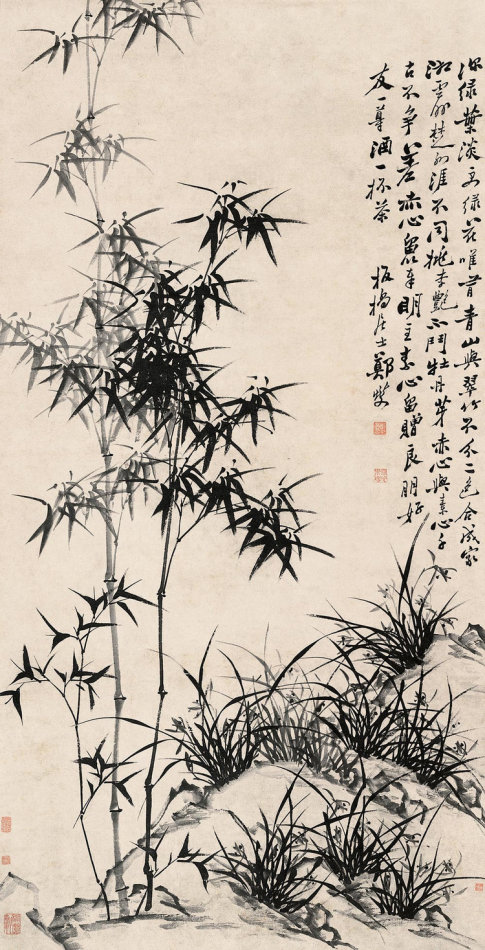 深綠葉淡綠花唯青山與翠竹不分二色合成家
湘雲楚涯不同桃李艷不鬥牡丹芽赤心與素心千
古不爭差赤心留奉明主素心留贈良朋好
友一尊酒一杯茶
板橋居士鄭燮